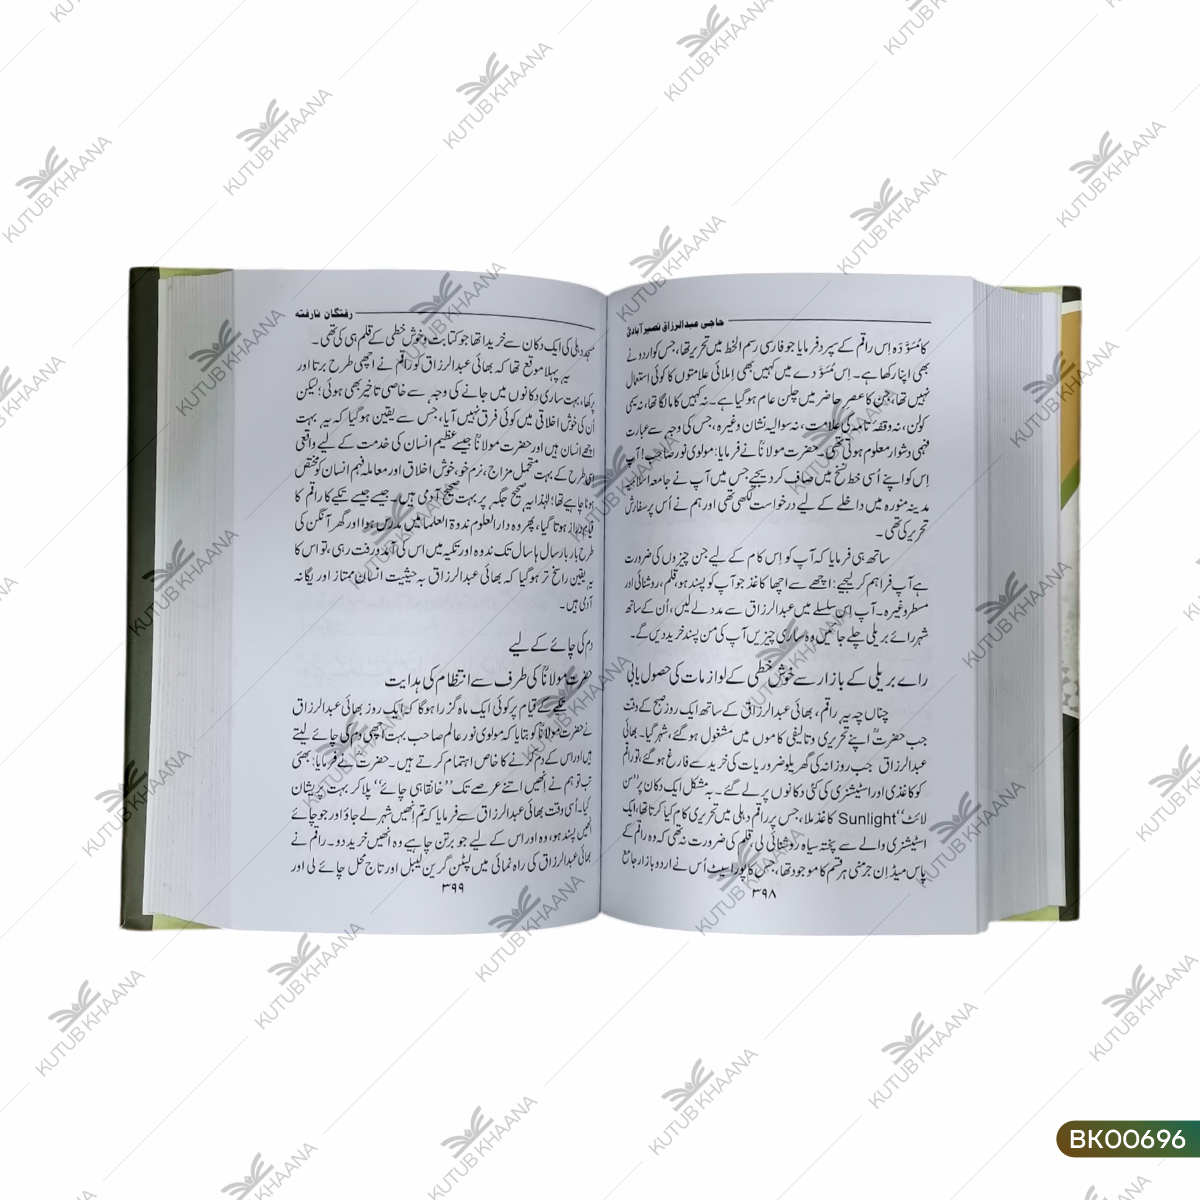 حاجی عبدالرزاق نصیر آبادیؒ
کا مُسَوَّدہ اِس راقم کے سپرد فرمایا جو فارسی رسم الخط میں تحریر تھا، جس کو اردو نے
بھی اپنا رکھا ہے۔ اِس مُسَوَّدے میں کہیں بھی اِملائی علامتوں کا کوئی استعمال
نہیں تھا، جن کا عصر حاضر میں چلن عام ہو گیا ہے۔ نہ کہیں کا مالگا تھا، نہ سیمی
کولن، نہ وقفۂ تامّہ کی علامت، نہ سوالیہ نشان وغیرہ، جس کی وجہ سے عبارت
فہمی دشوار معلوم ہوتی تھی۔ حضرت مولاناؒ نے فرمایا: مولوی نور صاحب! آپ
اِس کو اپنے اُسی خط نسخ میں صاف کر دیجیے جس میں آپ نے جامعہ اسلامیہ
مدینہ منورہ میں داخلے کے لیے درخواست لکھی تھی اور ہم نے اُس پر سفارش
تحریر کی تھی۔
ساتھ ہی فرمایا کہ آپ کو اِس کام کے لیے جن چیزوں کی ضرورت
ہے آپ فراہم کر لیجیے: اچھے سے اچھا کاغذ جو آپ کو پسند ہو، قلم، روشنائی اور
مسطر وغیرہ۔ آپ اِس سلسلے میں عبدالرزاق سے مدد لے لیں، اُن کے ساتھ
شہر رائے بریلی چلے جائیں وہ ساری چیزیں آپ کی من پسند خرید دیں گے۔
رائے بریلی کے بازار سے خوش خطی کے لوازمات کی حصول یابی
چناں چہ یہ راقم، بھائی عبدالرزاق کے ساتھ ایک روز صبح کے وقت
جب حضرتؒ اپنے تحریری و تالیفی کاموں میں مشغول ہو گئے، شہر گیا۔ بھائی
عبدالرزاق جب روزانہ کی گھریلو ضروریات کی خرید سے فارغ ہو گئے، تو راقم
کو کاغذی اور اسٹیشنری کی کئی دکانوں پر لے گئے۔ بہ مشکل ایک دکان پر ”سن
لائٹ“ Sunlight کاغذ ملا، جس پر راقم دہلی میں تحریری کام کیا کرتا تھا، ایک
اسٹیشنری والے سے پختہ سیاہ روشنائی لی، قلم کی ضرورت نہ تھی کہ وہ راقم کے
پاس میڈ اِن جرمنی ہر قسم کا موجود تھا، جس کا پورا سیٹ اُس نے اردو بازار جامع
۳۹۸
رفتگان نارفتہ
مسجد دہلی کی ایک دکان سے خریدا تھا جو کتابت و خوش خطی کے قلم ہی کی تھی۔
یہ پہلا موقع تھا کہ بھائی عبدالرزاق کو راقم نے اچھی طرح برتا اور
پرکھا، بہت ساری دکانوں میں جانے کی وجہ سے خاصی تاخیر بھی ہوئی؛ لیکن
اُن کی خوش اخلاقی میں کوئی فرق نہیں آیا، جس سے یقین ہو گیا کہ یہ بہت
اچھے انسان ہیں اور حضرت مولاناؒ جیسے عظیم انسان کی خدمت کے لیے واقعی
اِسی طرح کے بہت متحمل مزاج، نرم خو، خوش اخلاق اور معاملہ فہم انسان کو مختص
ہونا چاہیے تھا؛ لہٰذا یہ صحیح جگہ پر بہت صحیح آدمی ہیں۔ جیسے جیسے تکیے کا راقم کا
قیام دراز ہوتا گیا، پھر وہ دارالعلوم ندوۃ العلما میں مدرس ہوا اور گھر آنگن کی
طرح بار بار سال ہا سال تک ندوہ اور تکیہ میں اس کی آمد و رفت رہی، تو اس کا
یہ یقین راسخ تر ہو گیا کہ بھائی عبدالرزاق بہ حیثیت انسان ممتاز اور یگانہ
آدمی ہیں۔
دم کی چائے کے لیے
حضرت مولاناؒ کی طرف سے انتظام کی ہدایت
تکیے کے قیام پر کوئی ایک ماہ گزرا ہوگا کہ ایک روز بھائی عبدالرزاق
نے حضرت مولاناؒ کو بتایا کہ مولوی نور عالم صاحب بہت اچھی دم کی چائے لیتے
ہیں اور اس کے دم کرنے کا خاص اہتمام کرتے ہیں۔ حضرتؒ نے فرمایا: بھئی
تب تو ہم نے اِنھیں اتنے عرصے تک ”خانقاہی چائے“ پلا کر بہت پریشان
کیا۔ اُسی وقت بھائی عبدالرزاق سے فرمایا کہ تم اِنھیں شہر لے جاؤ اور جو چائے
اِنھیں پسند ہو، وہ اور اس کے لیے جو برتن چاہیے وہ اِنھیں خرید دو۔ راقم نے
بھائی عبدالرزاق کی راہ نمائی میں لپٹن گرین لیبل اور تاج محل چائے لی اور
۳۹۹
KUTUB KHAANA
BK00696